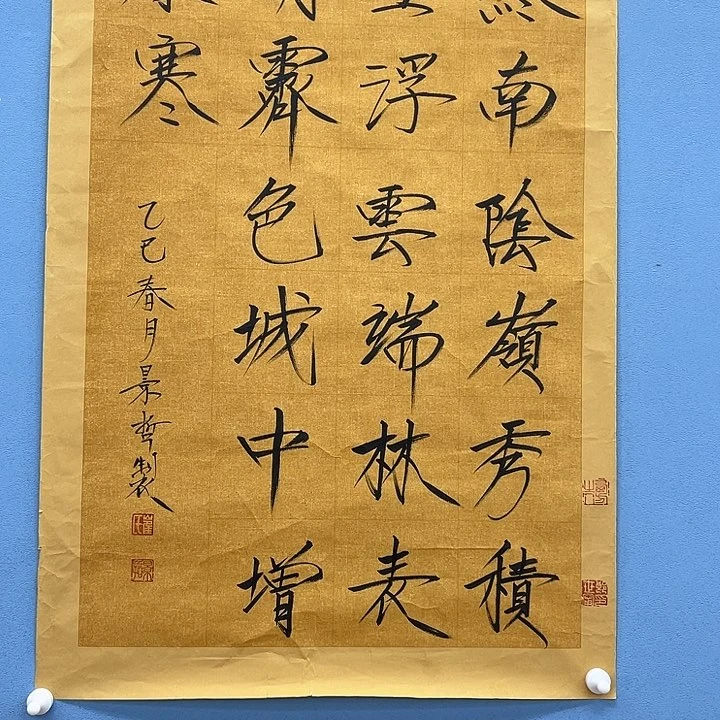 南陰嶺秀積
浮雲端林表
霽色城中增
寒
乙巳春月景哲製